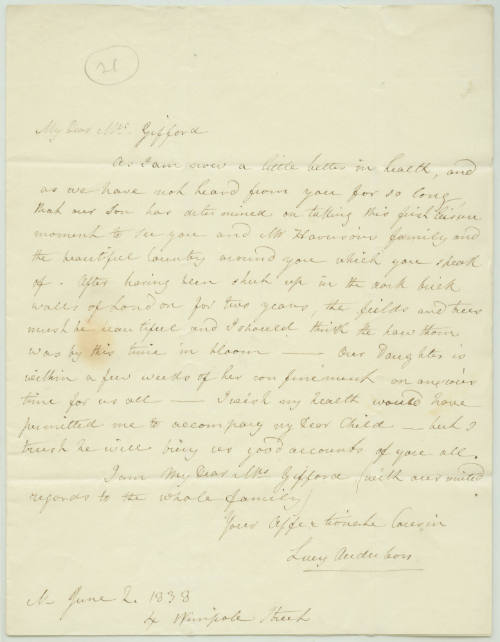 21
My Dear Mrs. Gifford
As I am now a little better in health, and
as we have not heard from you for so long
that our Son has determined on taking this first leisure
moment to see you and Mr Harrison's family and
the beautiful Country around you which you speak
of. After having been shut up in the dark brick
walls of London for two years, the fields and trees
must be beautiful and I should think the hawthorn
was by this time in bloom — Our Daughter is
within a few weeks of her confinement an anxious
time for us all — I wish my health would have
permitted me to accompany my Dear Child — but I
trust he will bring us good accounts of you all.
I am My Dear Mrs Gifford (with our united
regards to the whole family)
Your Affectionate Cousin
Lucy Audubon
June 2. 1838
4 Wimpole Street